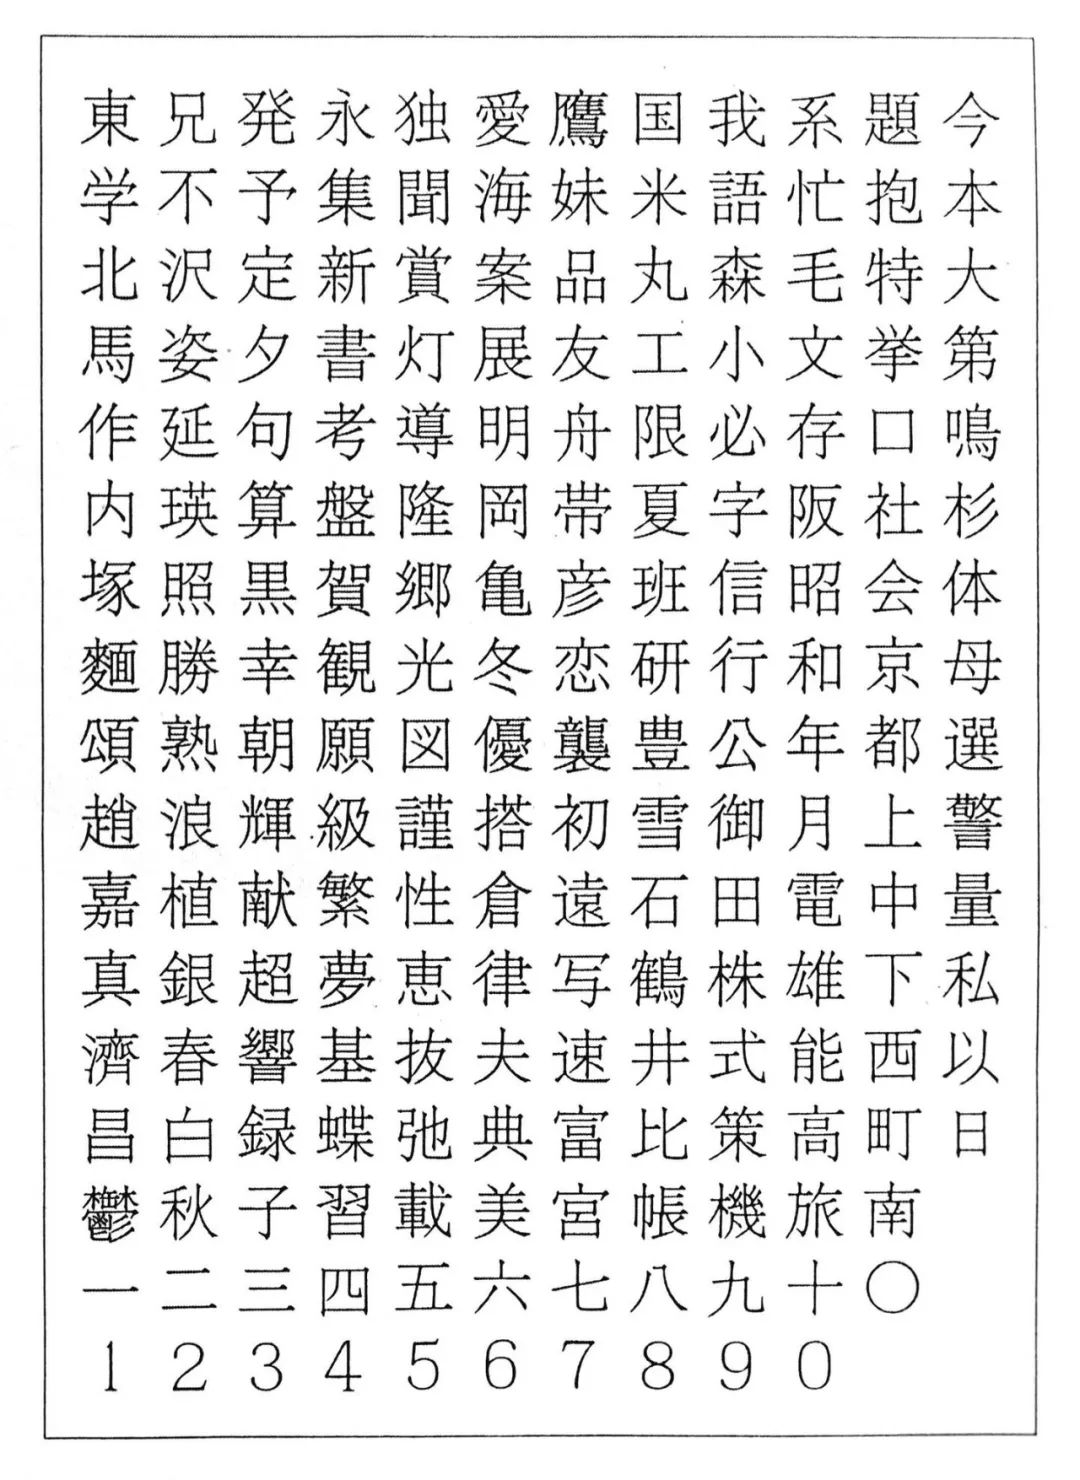 東兄発永独愛鷹国我系題今
学不予集聞海妹米語忙抱本
北沢定新賞案品丸森毛特大
馬姿夕書灯展友工小文挙第
作延句考導明舟限必存口鳴
内瑛算盤隆岡帯夏字阪社杉
塚照黒賀郷亀彦班信昭会体
麵勝幸観光冬恋研行和京母
頌熟朝願図優襲豊公年都選
趙浪輝級謹搭初雪御月上警
嘉植献繁性倉遠石田電中量
真銀超夢恵律写鶴株雄下私
濟春響基抜夫速井式能西以
昌白録蝶弛典富比策高町日
鬱秋子習載美宮帳機旅南
一二三四五六七八九十〇
1234567890